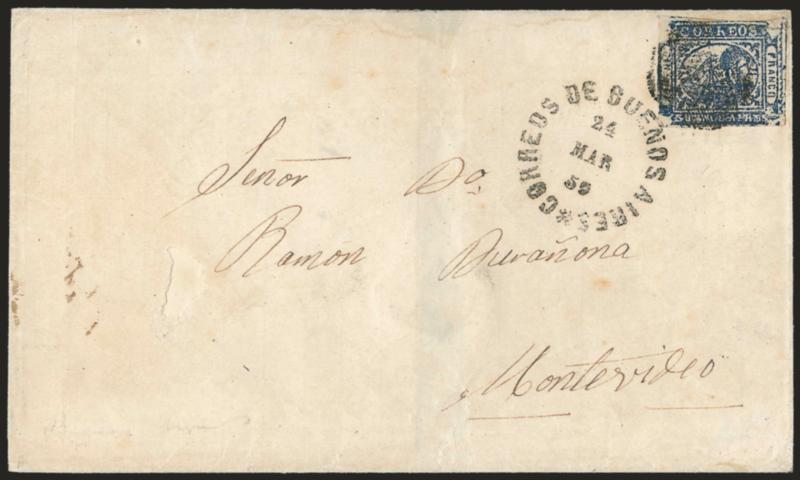 CORREOS
FRANCO
CORREOS DE BUENOS AIRES
24
MAR
59
Señor Dn.
Ramon Duvañona
Montevideo